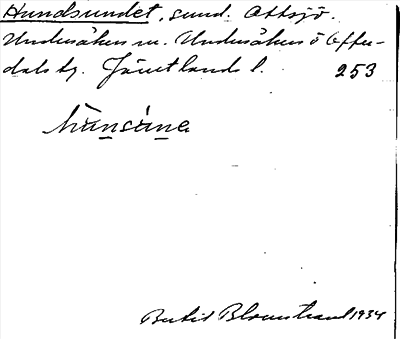 Hundsundet, sund. Ottsjö.
Undersåkers sn. Undersåkers o Offer-
dals tg. Jämtlands l. 253
Bertil Blomstrand 1934